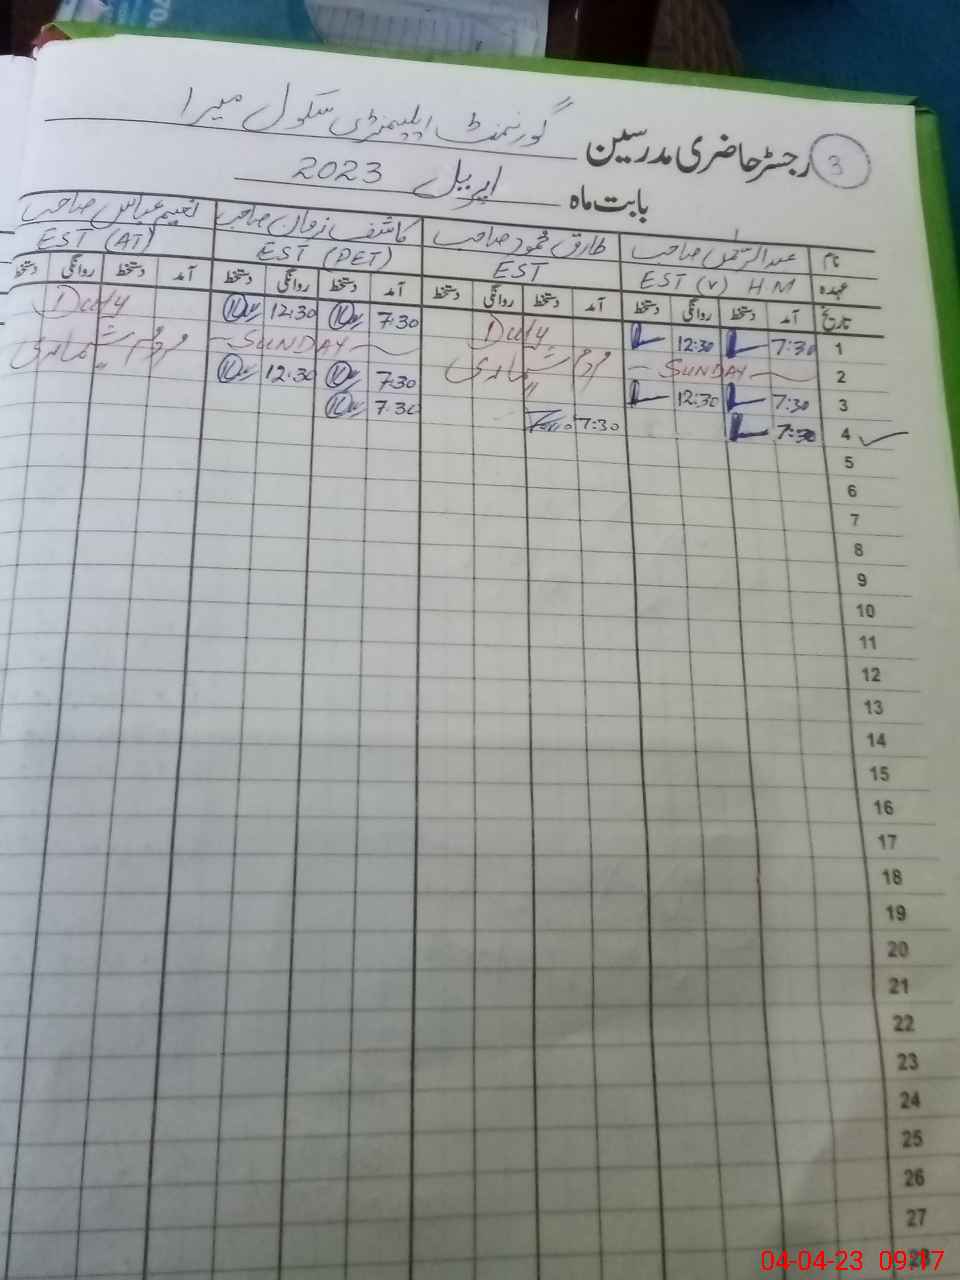 3
رجسٹر حاضری مدرسین گورنمنٹ ایلیمنٹری سکول میرا
بابت ماہ اپریل 2023
نام عبدالرحمٰن صاحب طارق محمود صاحب کاشف زمان صاحب نعیم عباس صاحب
عہدہ EST (V) H.M EST EST (PET) EST (AT)
تاریخ آمد دستخط روانگی دستخط آمد دستخط روانگی دستخط آمد دستخط روانگی دستخط آمد دستخط روانگی دستخط
1 7:30 12:30 Duty 7:30 12:30 Duty
2 SUNDAY مردم شماری SUNDAY مردم شماری
3 7:30 12:30 7:30 12:30
4 7:30 7:30 7:30
5
6
7
8
9
10
11
12
13
14
15
16
17
18
19
20
21
22
23
24
25
26
27
28
04-04-23 09:17